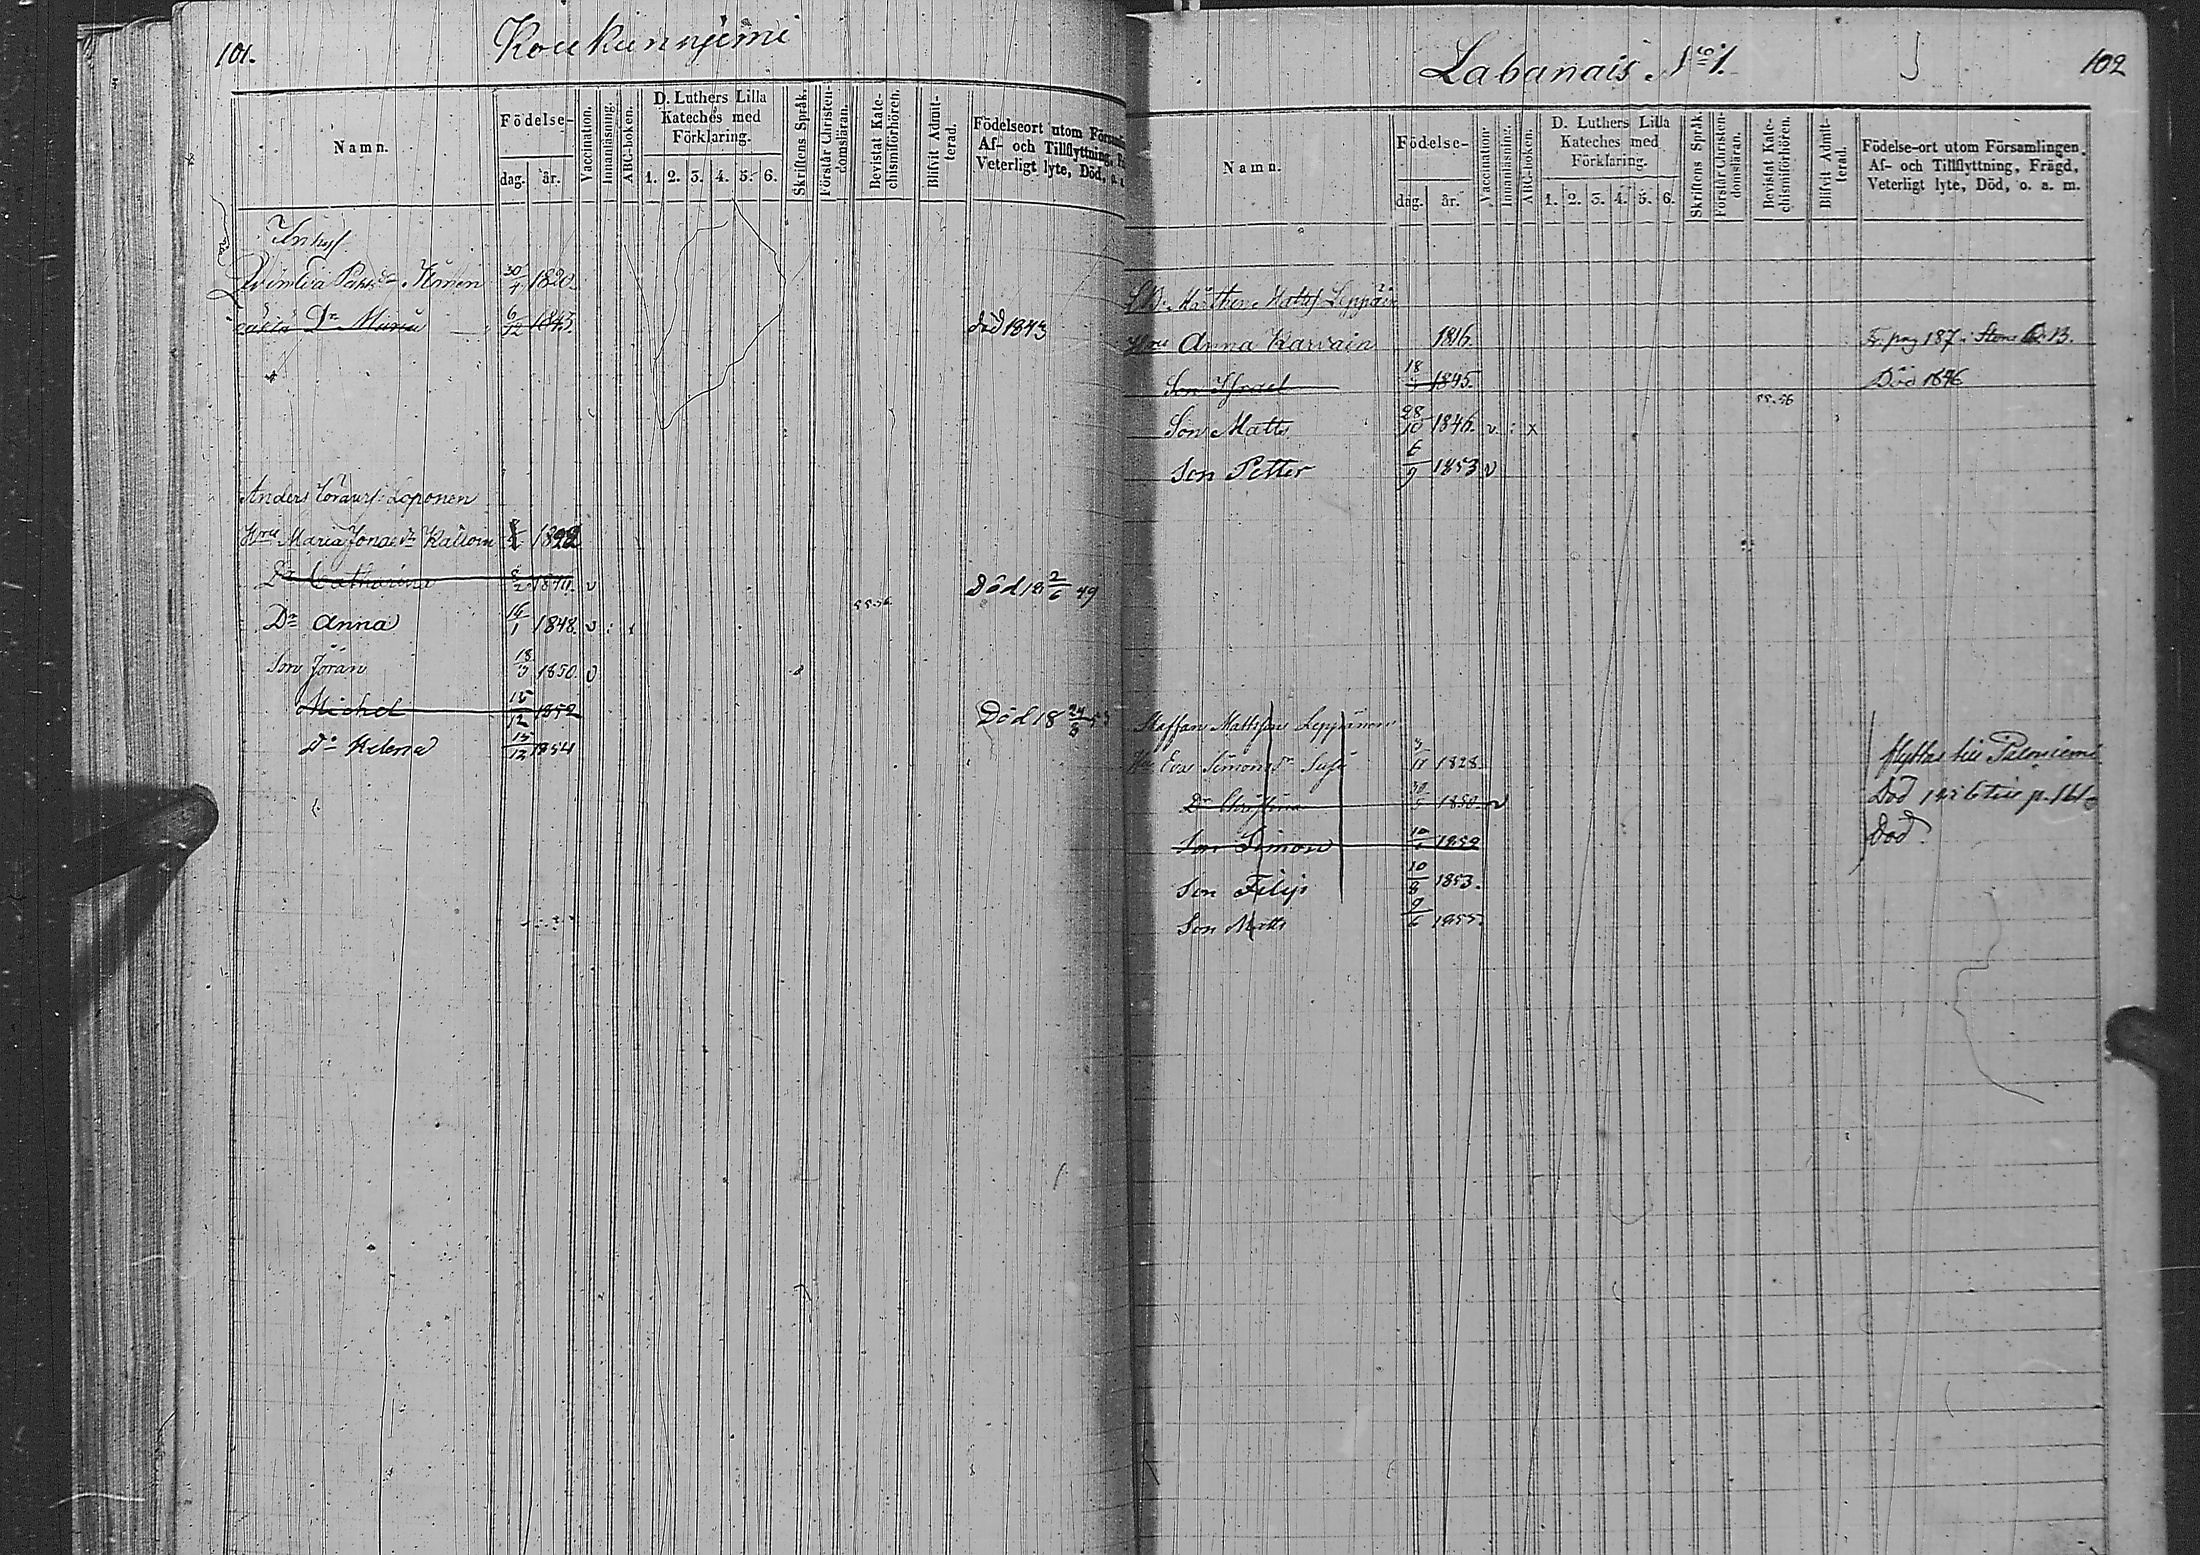 101.
Koukunniemi
Namn.
Födelse-
dag. år.
Vaccination.
Innanläsning.
ABC-boken.
D. Luthers Lilla
Kateches med
Förklaring.
1. 2. 3. 4. 5. 6.
Skriftens Språk.
Förstår Christen-
domsläran.
Bevistat Kate-
chismiförhören.
Blifvit Admit-
terad.
Födelseort utom
Af- och Tillflyttning,
Veterligt lyte, Död, o. a.
30/4 1820
Dr Maria 6/12 1843 död 1843
Anders Göranss. Loponen
Hru Maria Jonae dr
Dr Catharina v Död 18 2/6 49
55.56
Dr Anna 16/1 1848. v :
Son Jöran 18/3 1850 v
Michel 15/12 1852 Död 18 24/8
Dr Helena 15/12 1854
Labanais No 1.
102
Namn.
Födelse-
dag. år.
Vaccination
Innanläsning.
ABC-boken.
D. Luthers Lilla
Kateches med
Förklaring.
1. 2. 3. 4. 5. 6.
Skriftens Språk.
Förstår Christen-
domsläran.
Bevistat Kate-
chismiförhören.
Blifvit Admit-
terad.
Födelse-ort utom Församlingen,
Af- och Tillflyttning, Frägd,
Veterligt lyte, Död, o. a. m.
Matts. Leppäin
Hru Anna Karvain 1816. Fr. pag 187 i
Son Israel 18 1845. Död 1846
55.56
Son Matts 28/10 1846. v. : x
Son Petter 6/9 1853 v
Staffan Mattsson Leppänen
Hu Eva Simonsdr Susi 3/11 1828. flyttas till
Dr Christina 30 1850. v Död
Son Simon 10 1852 Död.
Son Filip 10/8 1853.
Son Matts 9/6 1855.